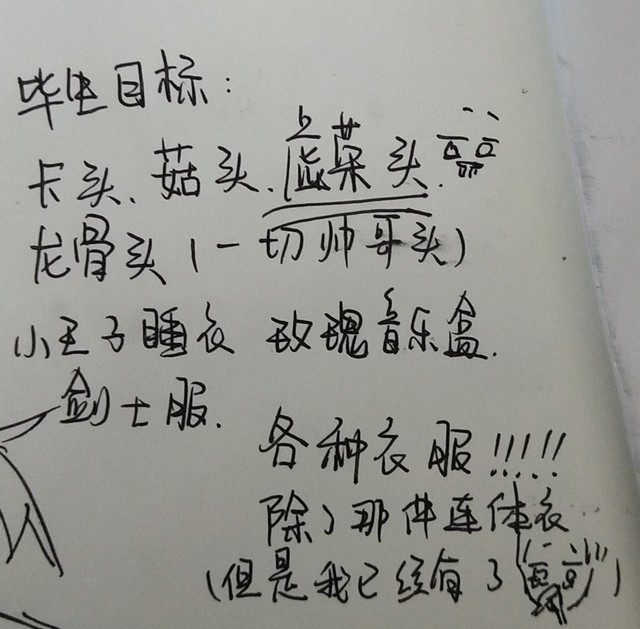 毕生目标：
卡头、菇头、虚菜头、
龙骨头(一切帅哥头)
小王子睡衣 玫瑰音乐盒.
剑士服.
各种衣服!!!!!
除了那件连体衣
(但是我已经有了)